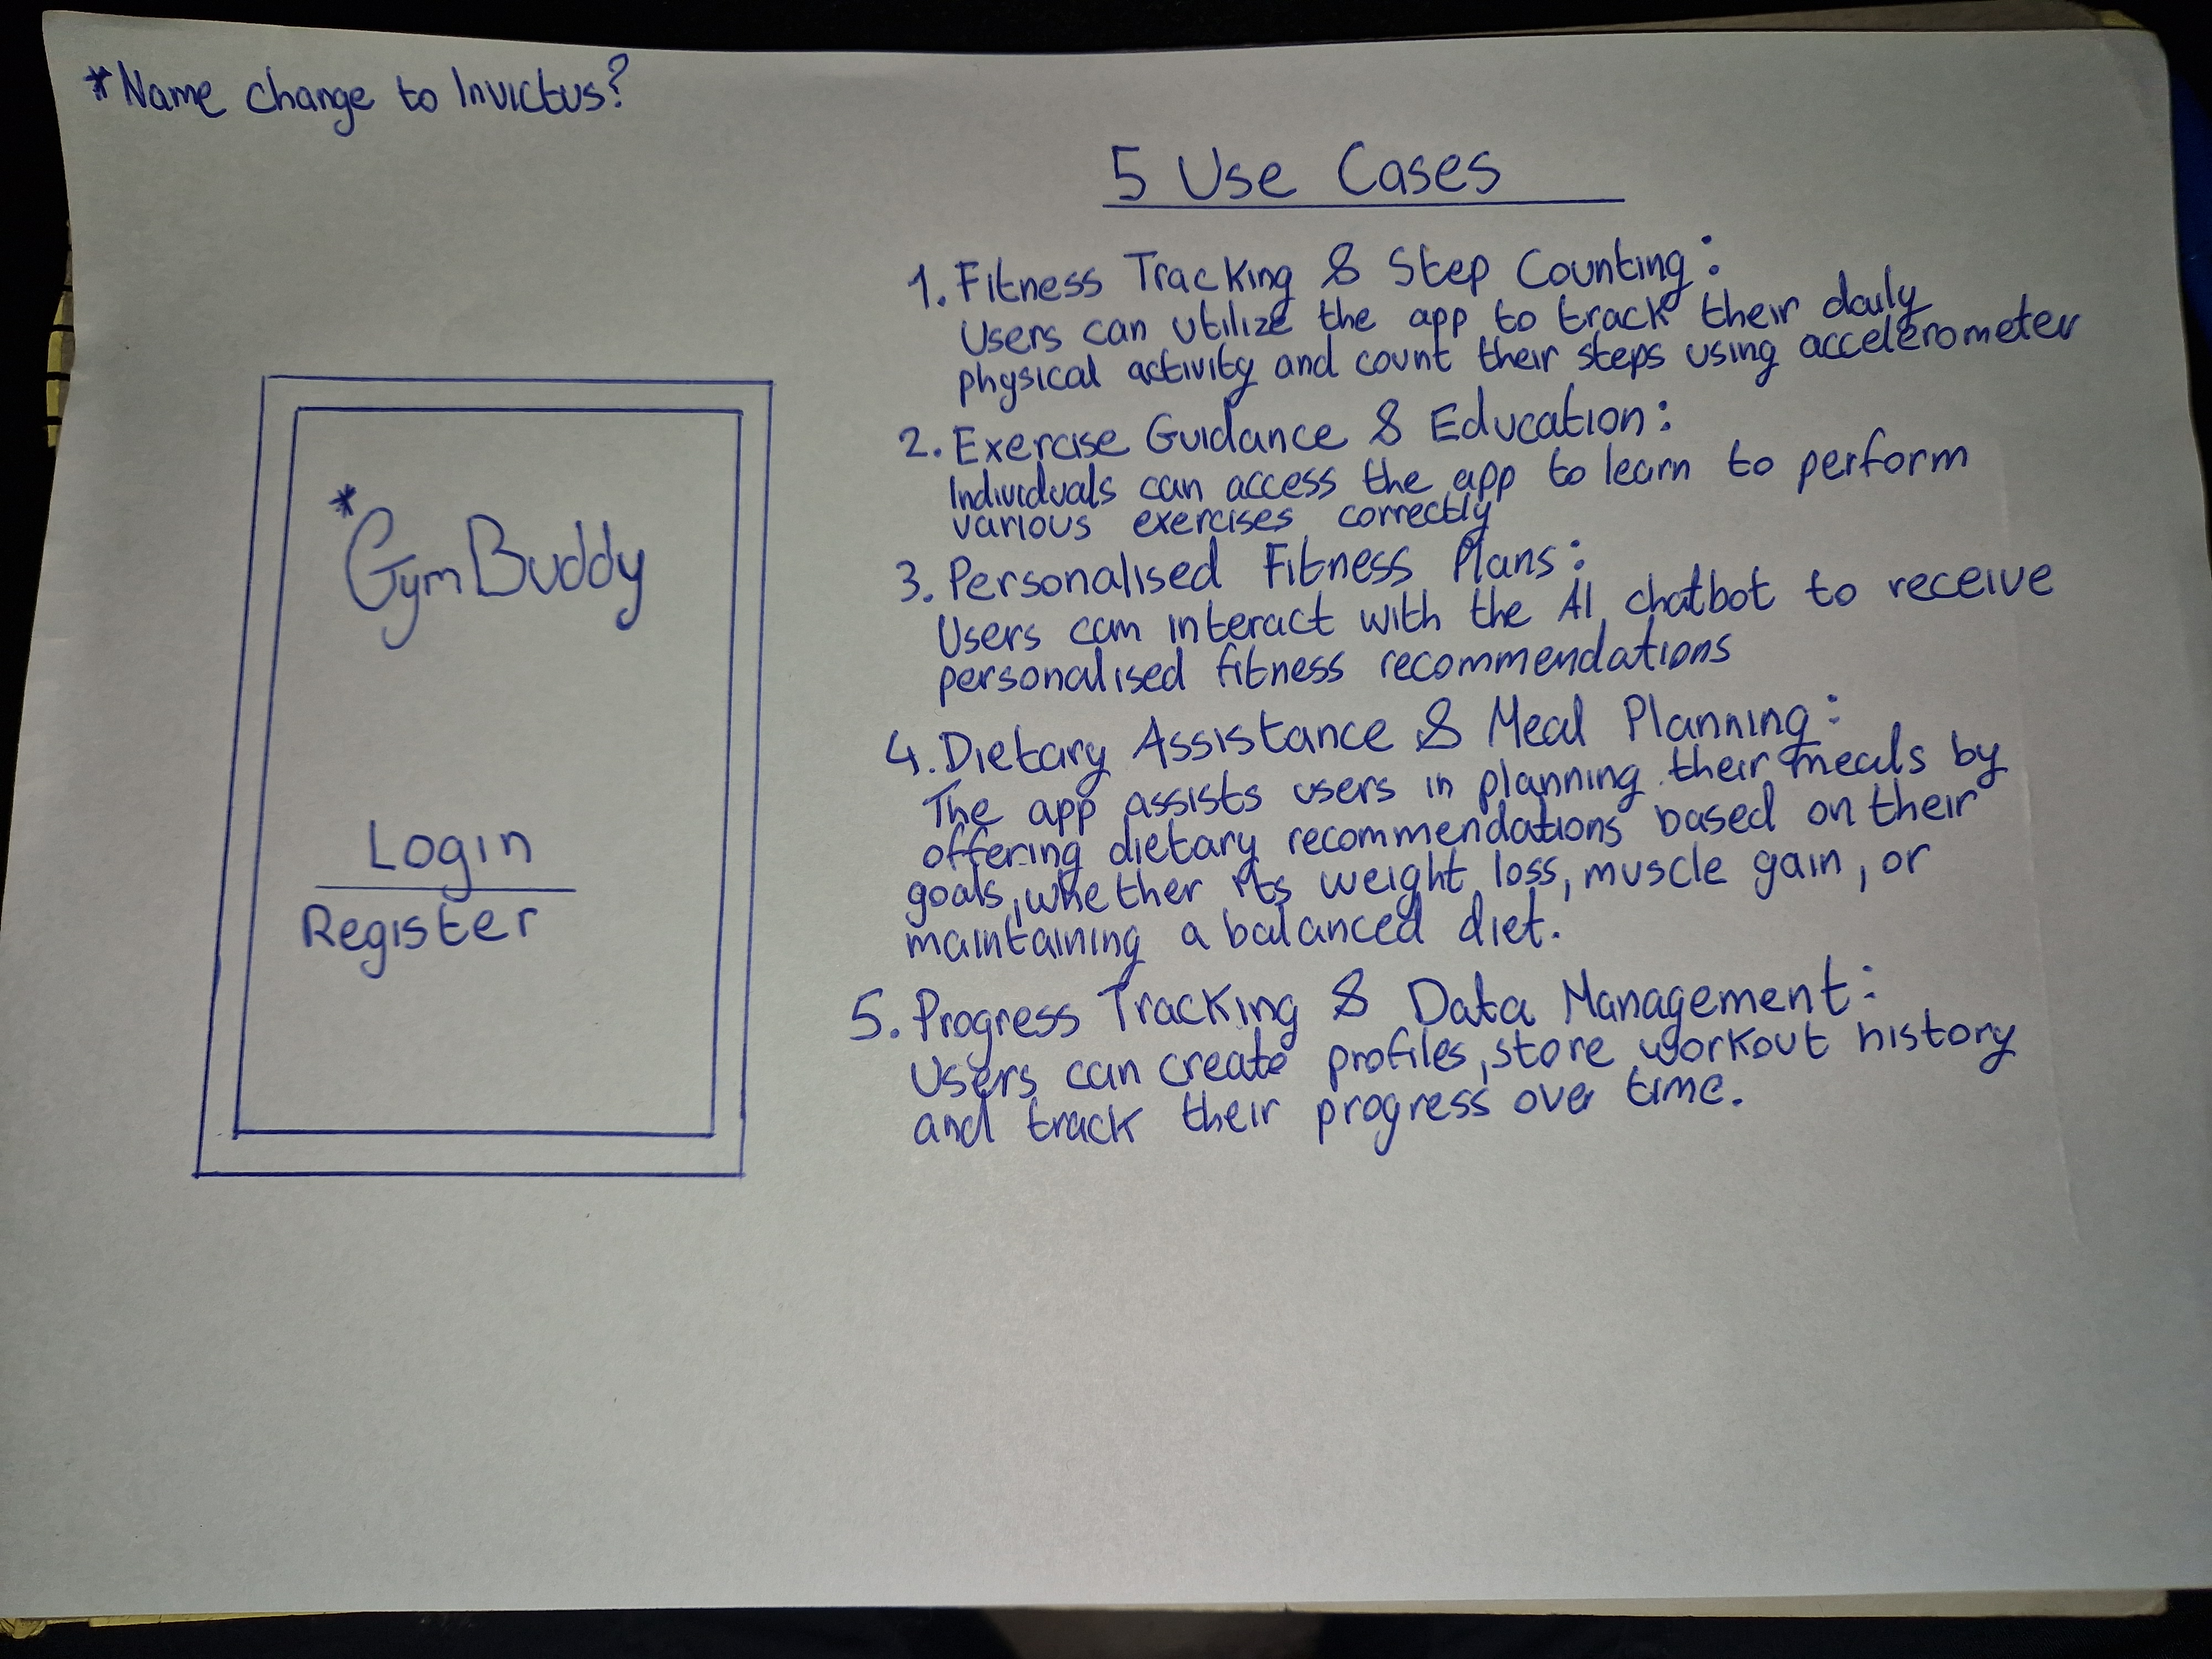 *Name change to Invictus?
5 Use Cases
*GymBuddy
Login
Register
1. Fitness Tracking & Step Counting:
Users can utilize the app to track their daily
physical activity and count their steps using accelerometer
2. Exercise Guidance & Education:
Individuals can access the app to learn to perform
various exercises correctly
3. Personalised Fitness Plans:
Users can interact with the AI chatbot to receive
personalised fitness recommendations
4. Dietary Assistance & Meal Planning:
The app assists users in planning their meals by
offering dietary recommendations based on their
goals, whether its weight loss, muscle gain, or
maintaining a balanced diet.
5. Progress Tracking & Data Management:
Users can create profiles, store workout history
and track their progress over time.